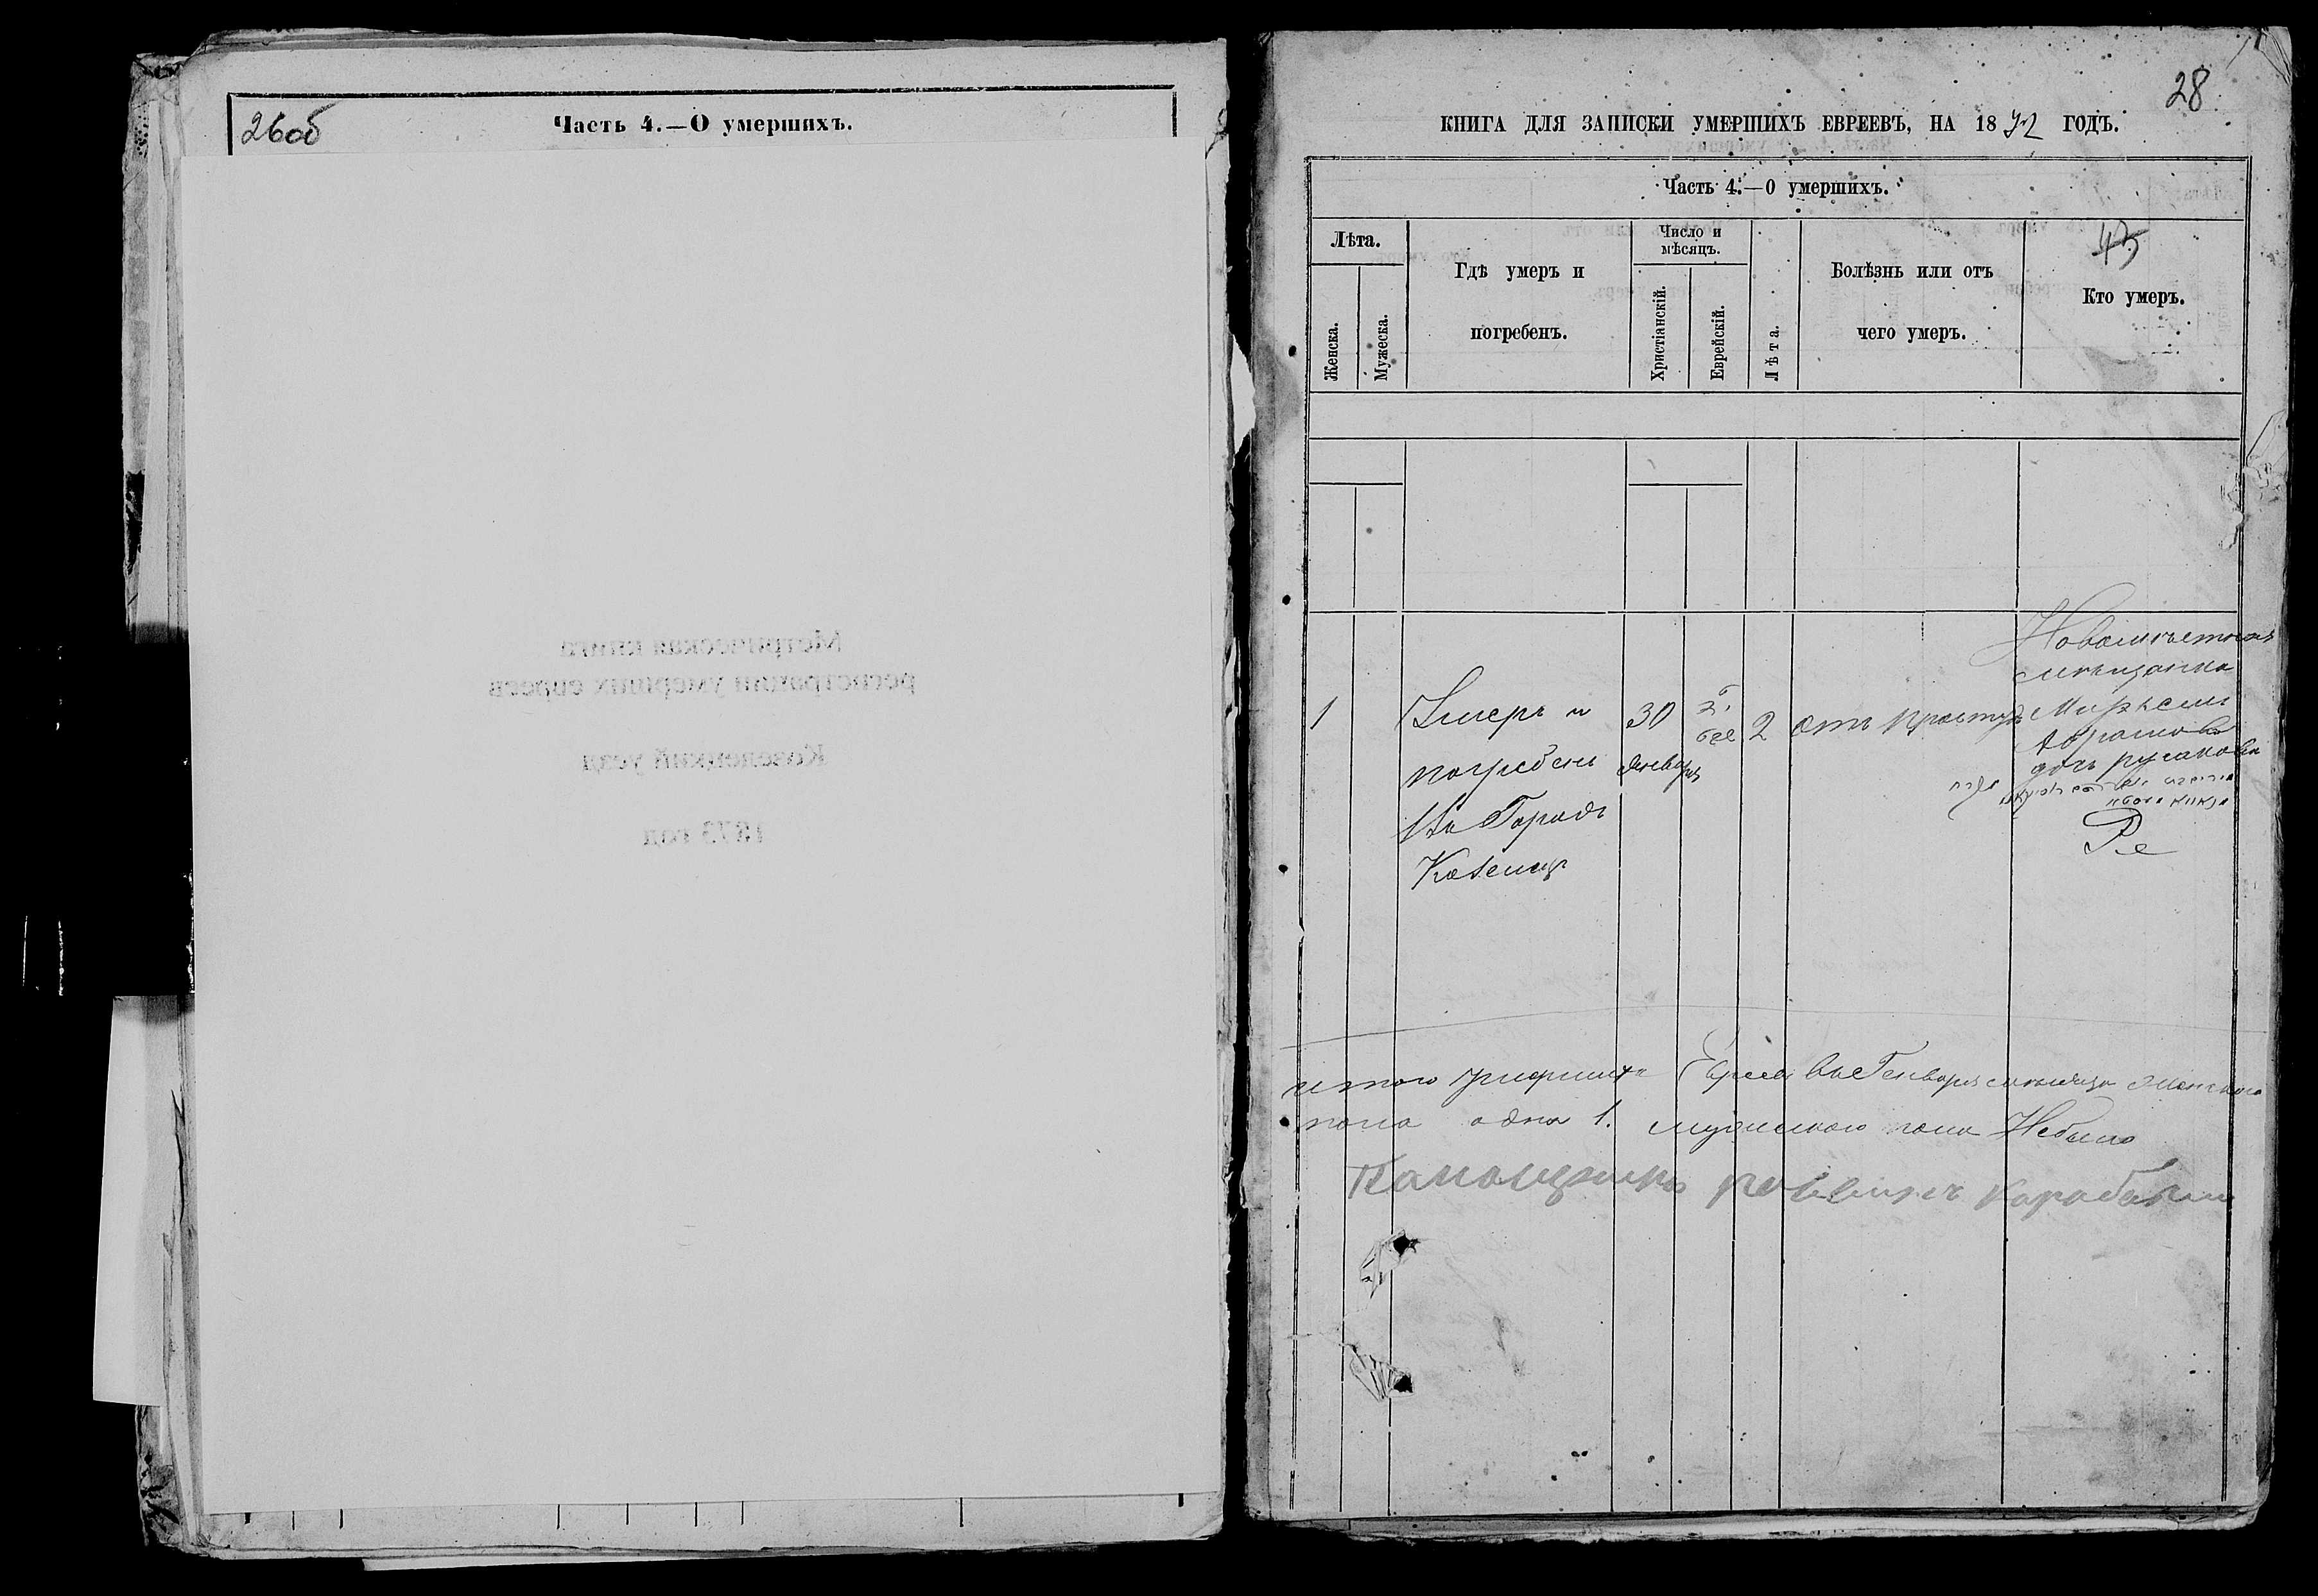 26об
Часть 4.—О умершихъ.
Метрическая книга
регистрации умерших евреев
Козелецкий уезд
1873 год
28
КНИГА ДЛЯ ЗАПИСКИ УМЕРШИХЪ ЕВРЕЕВЪ, НА 1872 ГОДЪ.
Часть 4.—О умершихъ.
Лѣта.
Женска.
Мужеска.
Гдѣ умеръ и
погребенъ.
Число и
мѣсяцъ.
Христіанскій.
Еврейскій.
Лѣта.
Болѣзнь или отъ
чего умеръ.
43
Кто умеръ.
1
Умеръ и
погребенъ
Въ Городѣ
Козельцѣ
30
Января
2
отъ простуд
мѣщанка
Абрамова
дочь Русакова
итого умершихъ Евреевъ въ Генваря мѣсяцѣ женскаго
пола одна 1. мужескаго пола Небыло